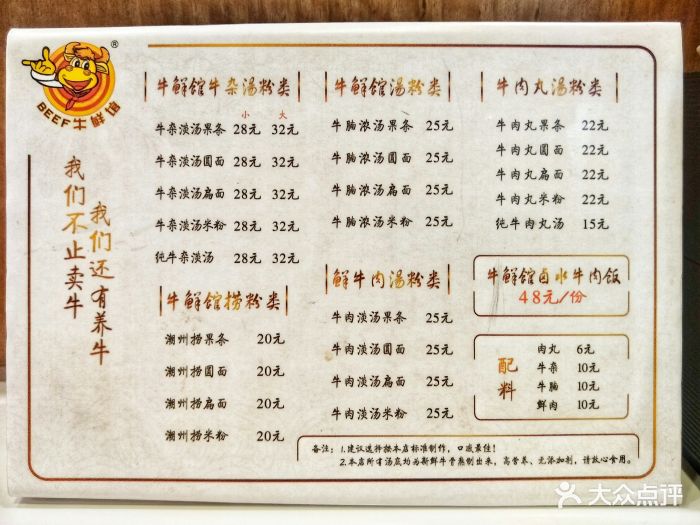 BEEF牛鲜馆
®
我们不止卖牛
我们还有养牛
牛鲜馆牛杂汤粉类
小 大
牛杂淡汤果条 28元 32元
牛杂淡汤圆面 28元 32元
牛杂淡汤扁面 28元 32元
牛杂淡汤米粉 28元 32元
纯牛杂淡汤 28元 32元
牛鲜馆捞粉类
潮州捞果条 20元
潮州捞圆面 20元
潮州捞扁面 20元
潮州捞米粉 20元
牛鲜馆汤粉类
牛腩浓汤果条 25元
牛腩浓汤圆面 25元
牛腩浓汤扁面 25元
牛腩浓汤米粉 25元
鲜牛肉汤粉类
牛肉淡汤果条 25元
牛肉淡汤圆面 25元
牛肉淡汤扁面 25元
牛肉淡汤米粉 25元
牛肉丸汤粉类
牛肉丸果条 22元
牛肉丸圆面 22元
牛肉丸扁面 22元
牛肉丸米粉 22元
纯牛肉丸汤 15元
牛鲜馆卤水牛肉饭
48元/份
配料
肉丸 6元
牛杂 10元
牛腩 10元
鲜肉 10元
备注：1.建议选择按本店标准制作，口感最佳！
2.本店所有汤底均为新鲜牛骨熬制出来，高营养、无添加剂，请放心食用。
大众点评